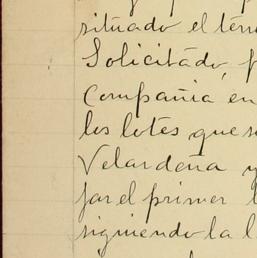 situado el térm
Solicitado, p
Compañia en
los lotes que s
Velardeña y
jar el primer l
siguiendo la l